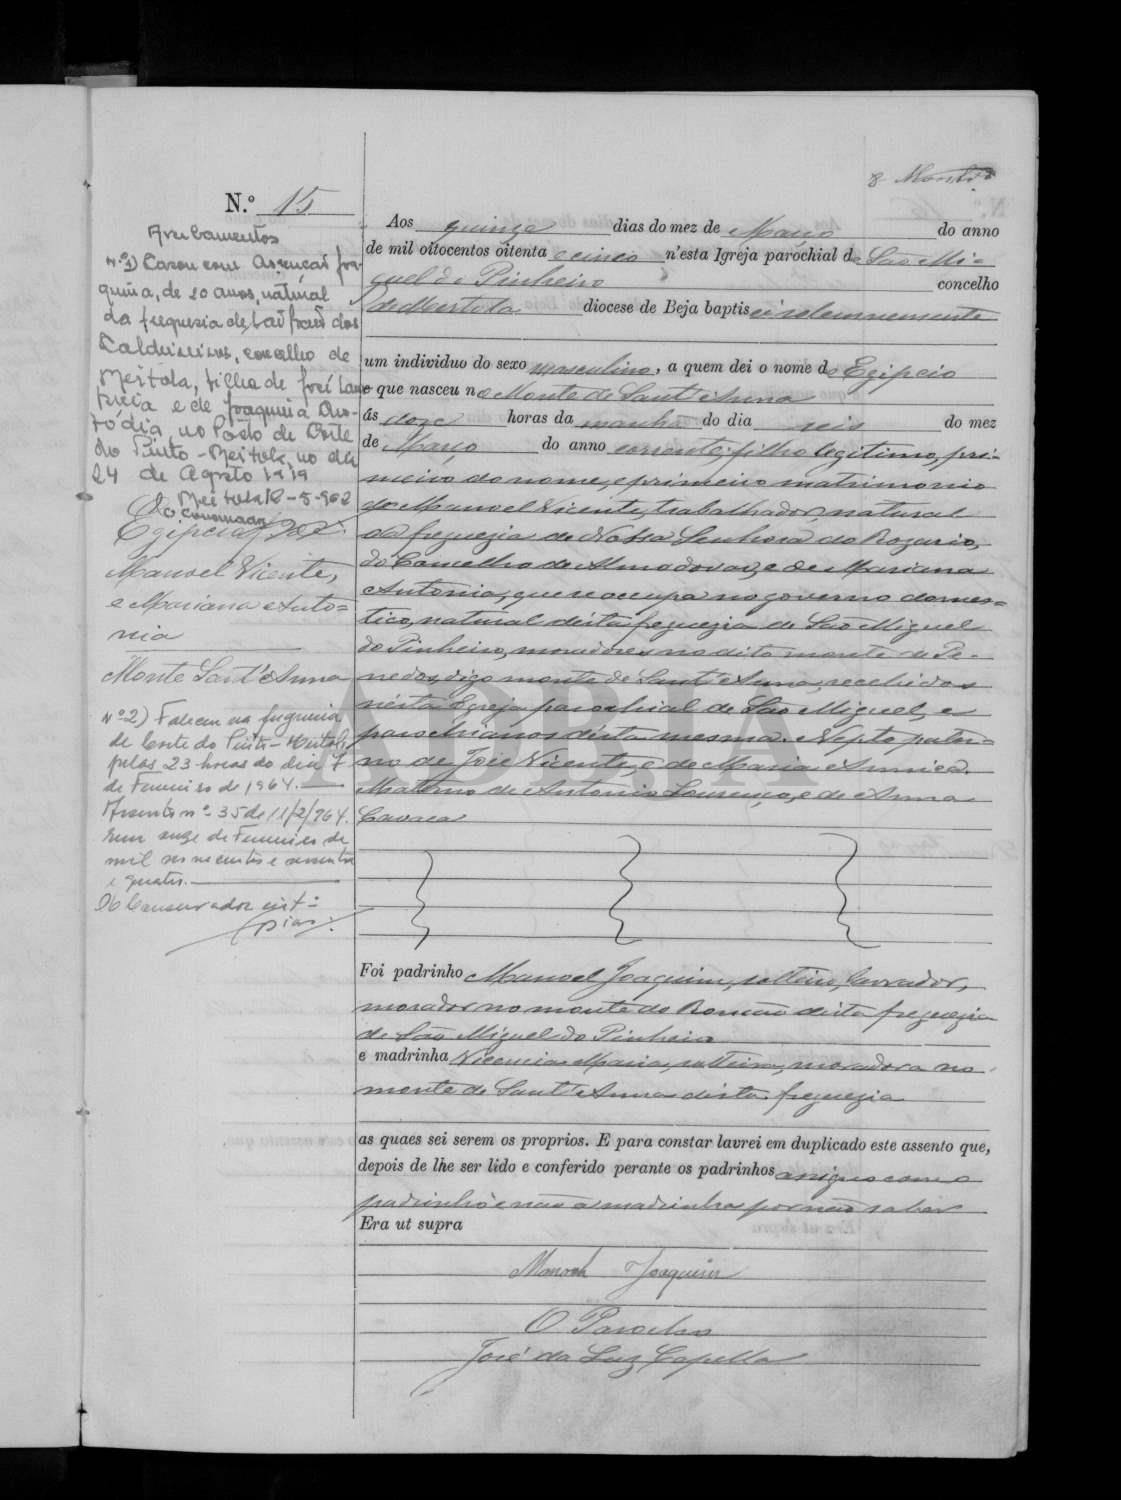 8
N.º 15
Averbamentos
nº1) Casou com
quina, de 20 anos, natural
da freguesia de, São João dos
Caldeireiros, concelho de
Mertola, filha de José
e de Joaquina
no Posto de Corte
do Pinto - Mertola, no dia
24 de Agosto 1919
Mertola 12-5-962
O Conservador
Egipcio, f.º de
Manoel Vicente,
e Mariana Anto=
nia
Monte Sant'Anna
Nº 2) Faleceu na freguesia
de Corte do Pinto - Mertola
pelas 23 horas do dia 7
de Fevereiro de 1964.
Assento nº 35 de 11/2/964.
onze de Fevereiro de
mil novecentos e sessenta
e quatro.
O Conservador
Dias
Aos quinze dias do mez de Março do anno
de mil oitocentos oitenta e cinco n'esta Igreja parochial de São Mi-
guel do Pinheiro concelho
de Mertola diocese de Beja baptisei solemnemente
um individuo do sexo masculino, a quem dei o nome de Egipcio
e que nasceu no Monte de Sant'Anna
ás doze horas da manhã do dia seis do mez
de Março do anno corrente, filho legitimo, pri-
meiro do nome, e primeiro matrimonio
de Manoel Vicente, trabalhador, natural
da freguezia de Nossa Senhora do Rozario,
do Concelho de Almodovar, e de Mariana
Antonia, que se occupa no governo domes=
tico, natural desta freguezia de São Miguel
do Pinheiro, moradores no dito monte de Pe-
nedos, digo monte de Sant'Anna, recebidos
nésta Egreja parochial de São Miguel, e
parochianos desta mesma. Nepto pater-
no de José Vicente, e de Maria Annica.
Materno de Antonio Lourenço, e de Anna
Foi padrinho Manoel Joaquim, solteiro, lavrador,
morador no monte do Romão desta freguezia
de São Miguel do Pinheiro
e madrinha Vicencia Maria, solteira, moradora no
monte de Sant'Anna desta freguezia
as quaes sei serem os proprios. E para constar lavrei em duplicado este assento que,
depois de lhe ser lido e conferido perante os padrinhos assigno com o
padrinho e não a madrinha por não saber
Era ut supra
Manoel Joaquim
O Parocho
José da Luz Capella
ADBJA